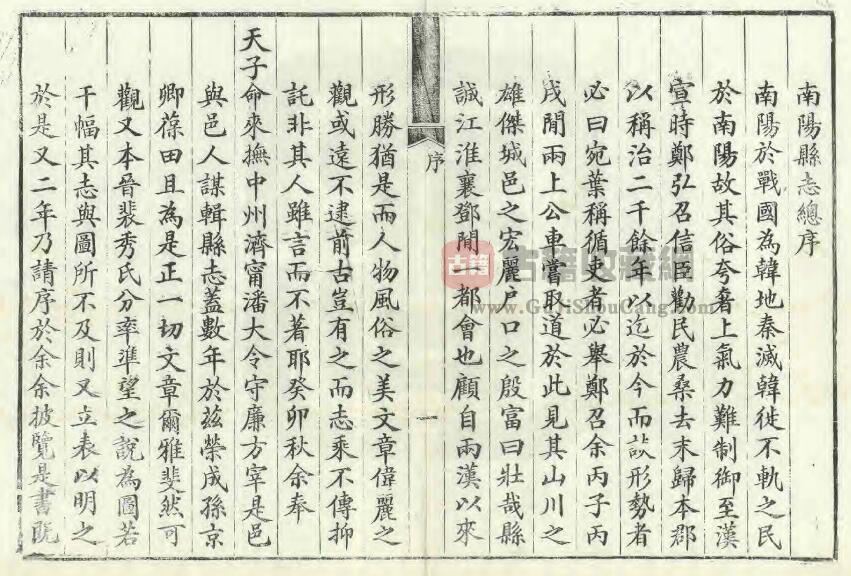 南陽縣志總序
南陽於戰國為韓地秦滅韓徙不軌之民
於南陽故其俗夸奢上氣力難制御至漢
宣時鄭弘召信臣勸民農桑去末歸本郡
以稱治二千餘年以迄於今而談形勢者
必曰宛葉稱循吏者必舉鄭召余丙子丙
戌閒兩上公車嘗取道於此見其山川之
雄傑城邑之宏麗戶口之殷富曰壯哉縣
誠江淮襄鄧閒一都會也顧自兩漢以來
序
一
形勝猶是而人物風俗之美文章偉麗之
觀或遠不逮前古豈有之而志乘不傳抑
託非其人雖言而不著耶癸卯秋余奉
天子命來撫中州濟甯潘大令守廉方宰是邑
與邑人謀輯縣志蓋數年於茲榮成孫京
卿葆田且為是正一切文章爾雅斐然可
觀又本晉裴秀氏分率準望之說為圖若
干幅其志與圖所不及則又立表以明之
於是又二年乃請序於余余披覽是書既
古籍
古籍收藏網
www.GuJiShouCang.com